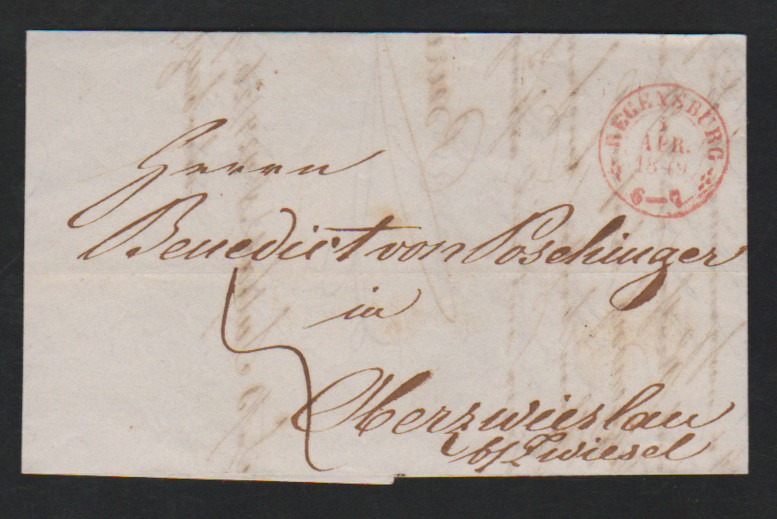 REGENSBURG
APR.
1849
6—7
Herrn
Benedict von Poschinger
in
Oberzwieslau
b/ Zwiesel